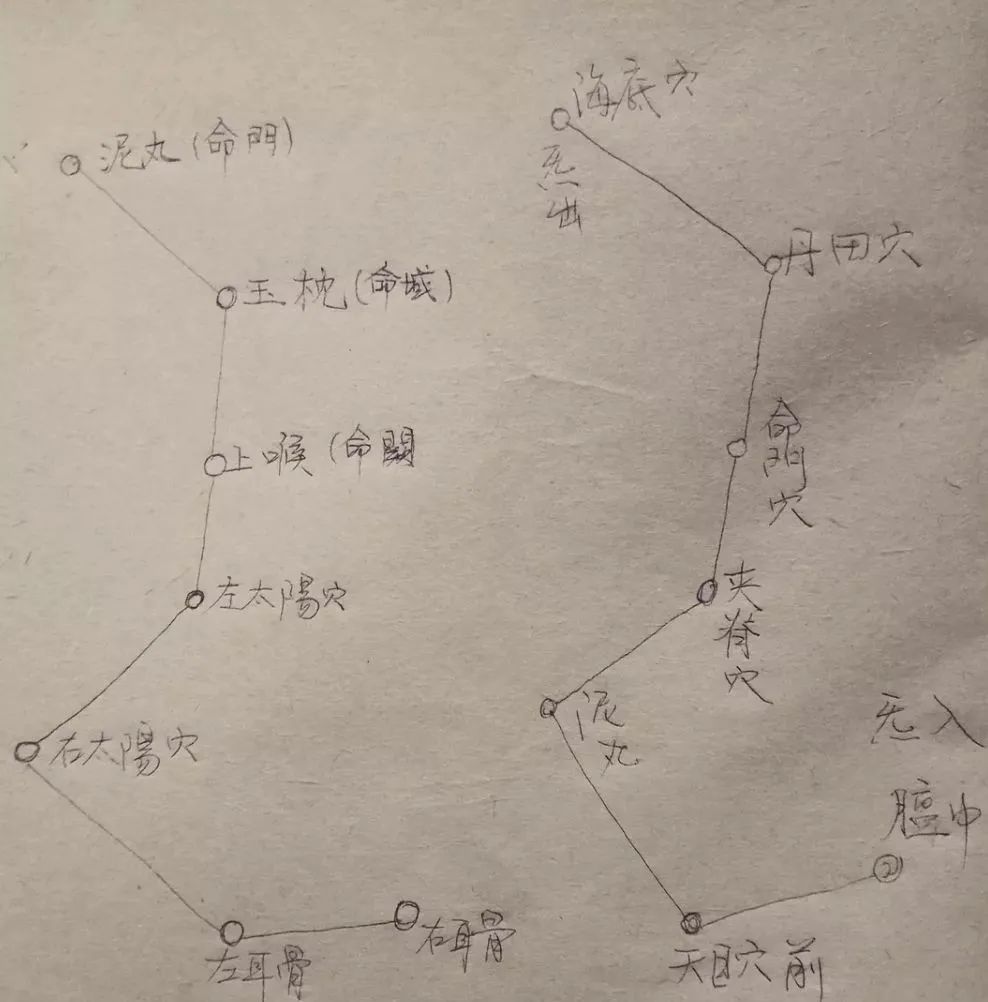 泥丸(命門)
玉枕(命城)
上喉(命關
左太陽穴
右太陽穴
左耳骨
右耳骨
海底穴
炁出
丹田穴
命門穴
夾脊穴
泥丸
炁入
膻中
天目穴前